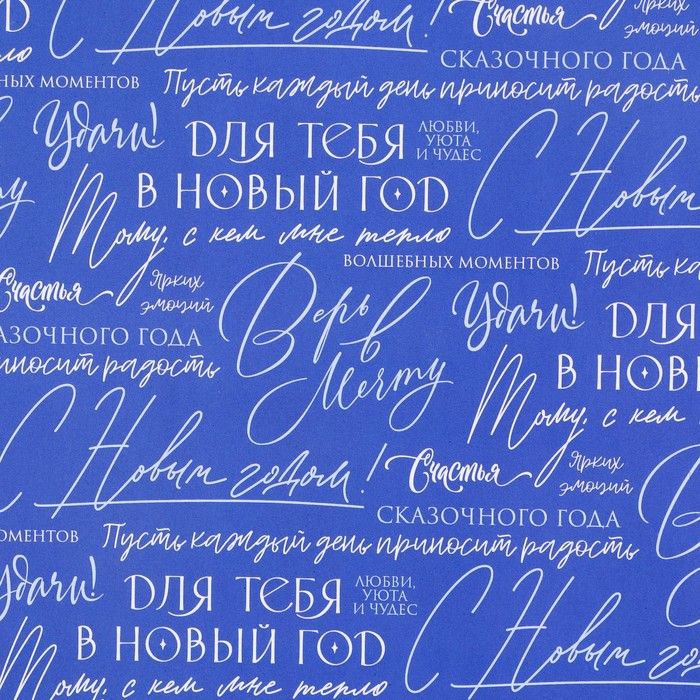 С Новым годом!
Счастья
Ярких
эмоций
СКАЗОЧНОГО ГОДА
ных моментов
Пусть каждый день приносит радость
Удачи!
Для тебя
ЛЮБВИ,
УЮТА
И ЧУДЕС
В НОВЫЙ ГОД
С Новым
Тому, с кем мне тепло
ВОЛШЕБНЫХ МОМЕНТОВ
Пусть ка
Счастья
Ярких
эмоций
Верь
в
Мечту
Удачи!
ДЛЯ
АЗОЧНОГО ГОДА
иносит радость
В НОВЫ
Тому, с кем
С Новым годом!
Счастья
Ярких
эмоций
СКАЗОЧНОГО ГОДА
ОМЕНТОВ
Пусть каждый день приносит радость
Удачи!
ДЛЯ ТЕБЯ
ЛЮБВИ,
УЮТА
И ЧУДЕС
В НОВЫЙ ГОД
С Новым
Тому, с кем мне тепло